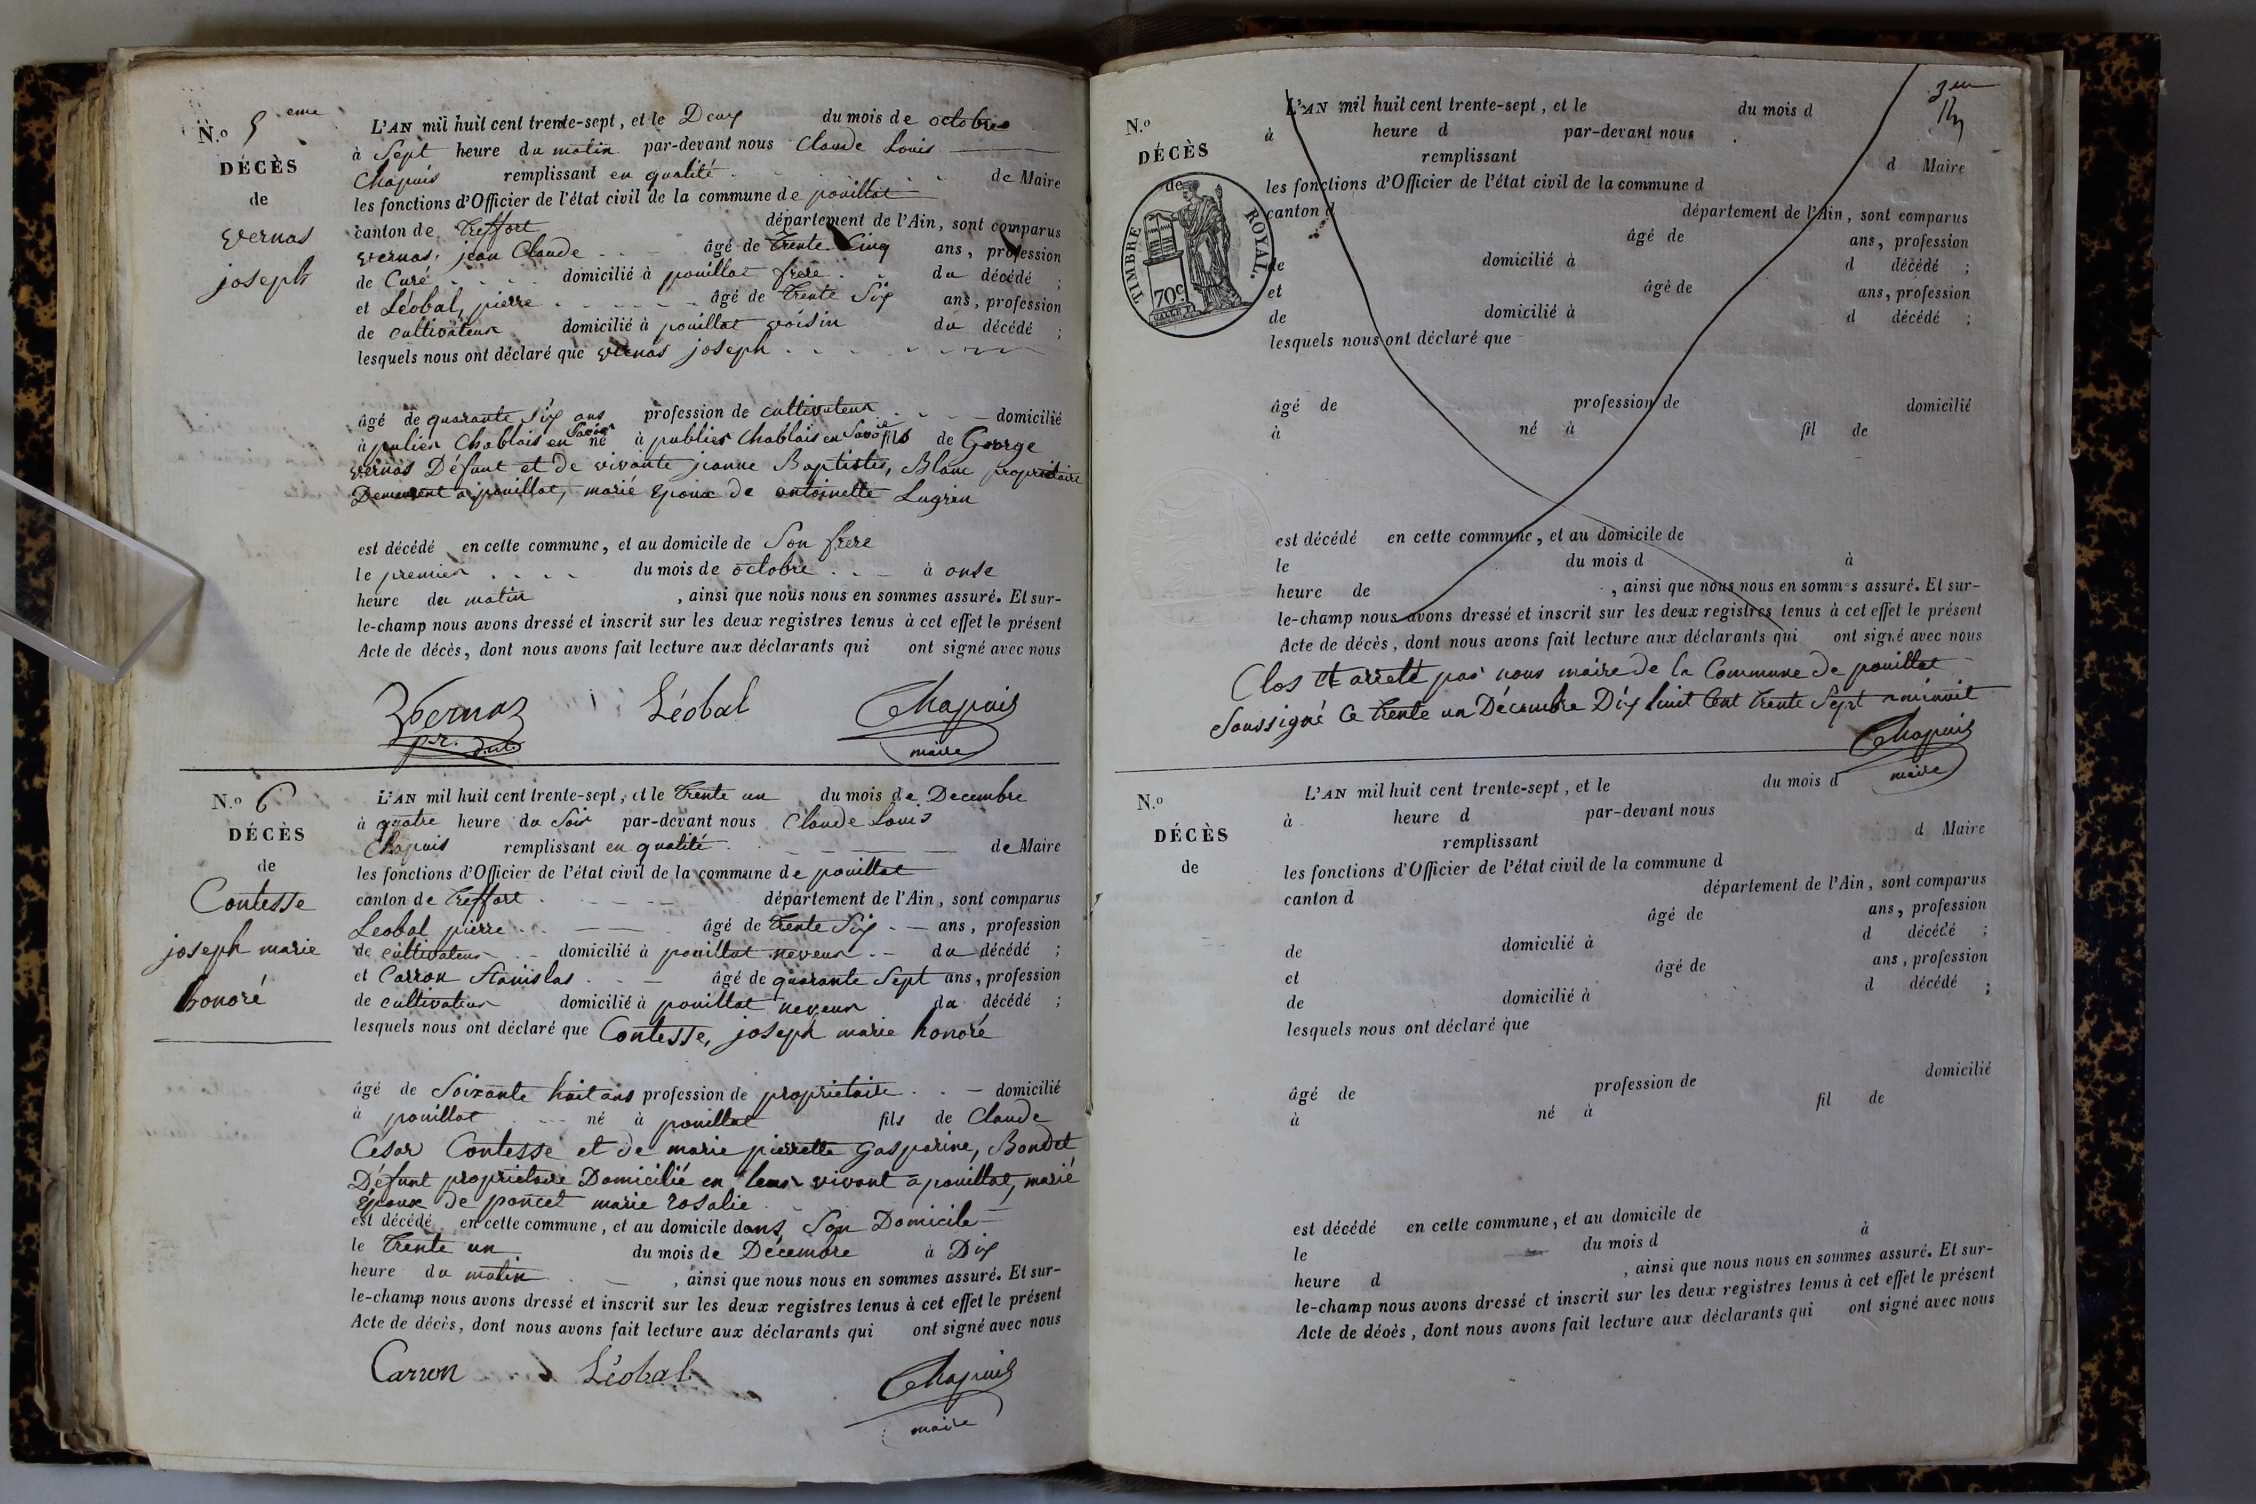 N.o 5 eme
DÉCÈS
de
vernas
joseph
L'AN mil huit cent trente-sept, et le Deux du mois de octobre
à Sept heure du matin par-devant nous Claude Louis
Chapuis remplissant en qualité de Maire
les fonctions d'Officier de l'état civil de la commune de pouillat
canton de treffort département de l'Ain, sont comparus
vernas, jean Claude âgé de trente Cinq ans, profession
de Curé domicilié à pouillat frere du décédé ;
et Léobal, pierre âgé de trente Six ans, profession
de cultivateur domicilié à pouillat voisin du décédé ;
lesquels nous ont déclaré que vernas joseph
âgé de quarante Six ans profession de cultivateur domicilié
à pulier Chablais en Savoie né à publier Chablais en Savoie fils de George
vernas Défunt et de vivante jeanne Baptiste, Blanc propriétaire
Demeurent a pouillat, marié Epoux de antoinette Lugrin
est décédé en cette commune, et au domicile de Son frere
le premier du mois de octobre à onse
heure du matin, ainsi que nous nous en sommes assuré. Et sur-
le-champ nous avons dressé et inscrit sur les deux registres tenus à cet effet le présent
Acte de décès, dont nous avons fait lecture aux déclarants qui ont signé avec nous
Vernaz Léobal Chapuis
maire
N.o 6
DÉCÈS
de
Contesse
joseph marie
honoré
L'AN mil huit cent trente-sept, et le trente un du mois de Decembre
à quatre heure du Soir par-devant nous Claude Louis
Chapuis remplissant en qualité de Maire
les fonctions d'Officier de l'état civil de la commune de pouillat
canton de treffort département de l'Ain, sont comparus
Leobal pierre âgé de trente Six ans, profession
de cultivateur domicilié à pouillat neveur du décédé ;
et Carron Stanislas âgé de quarante Sept ans, profession
de cultivateur domicilié à pouillat neveur du décédé ;
lesquels nous ont déclaré que Contesse, joseph marie honoré
âgé de Soixante huit ans profession de propriétaire domicilié
à pouillat né à pouillat fils de Claude
César Contesse et de marie pierrette Gasparine, Bondet
Défunt propriétaire Domicilié en leur vivant a pouillat, marié
Epoux de poncet marie rosalie
est décédé en cette commune, et au domicile dans Son Domicile
le trente un du mois de Décembre à Dix
heure du matin, ainsi que nous nous en sommes assuré. Et sur-
le-champ nous avons dressé et inscrit sur les deux registres tenus à cet effet le présent
Acte de décès, dont nous avons fait lecture aux déclarants qui ont signé avec nous
Carron Léobal Chapuis
maire
N.o
DÉCÈS
de
TIMBRE ROYAL.
70c.
L'AN mil huit cent trente-sept, et le du mois d
à heure d par-devant nous
remplissant d Maire
les fonctions d'Officier de l'état civil de la commune d
canton d département de l'Ain, sont comparus
âgé de ans, profession
de domicilié à d décédé ;
et âgé de ans, profession
de domicilié à d décédé ;
lesquels nous ont déclaré que
âgé de profession de domicilié
à né à fil de
est décédé en cette commune, et au domicile de
le du mois d à
heure de , ainsi que nous nous en sommes assuré. Et sur-
le-champ nous avons dressé et inscrit sur les deux registres tenus à cet effet le présent
Acte de décès, dont nous avons fait lecture aux déclarants qui ont signé avec nous
Clos et arreté par nous maire de la Commune de pouillat
Soussigné Ce trente un Décembre Dix huit Cent trente Sept a minuit
Chapuis
maire
N.o
DÉCÈS
de
L'AN mil huit cent trente-sept, et le du mois d
à heure d par-devant nous
remplissant d Maire
les fonctions d'Officier de l'état civil de la commune d
canton d département de l'Ain, sont comparus
âgé de ans, profession
de domicilié à d décédé ;
et âgé de ans, profession
de domicilié à d décédé ;
lesquels nous ont déclaré que
âgé de profession de domicilié
à né à fil de
est décédé en cette commune, et au domicile de
le du mois d à
heure d , ainsi que nous nous en sommes assuré. Et sur-
le-champ nous avons dressé et inscrit sur les deux registres tenus à cet effet le présent
Acte de décès, dont nous avons fait lecture aux déclarants qui ont signé avec nous